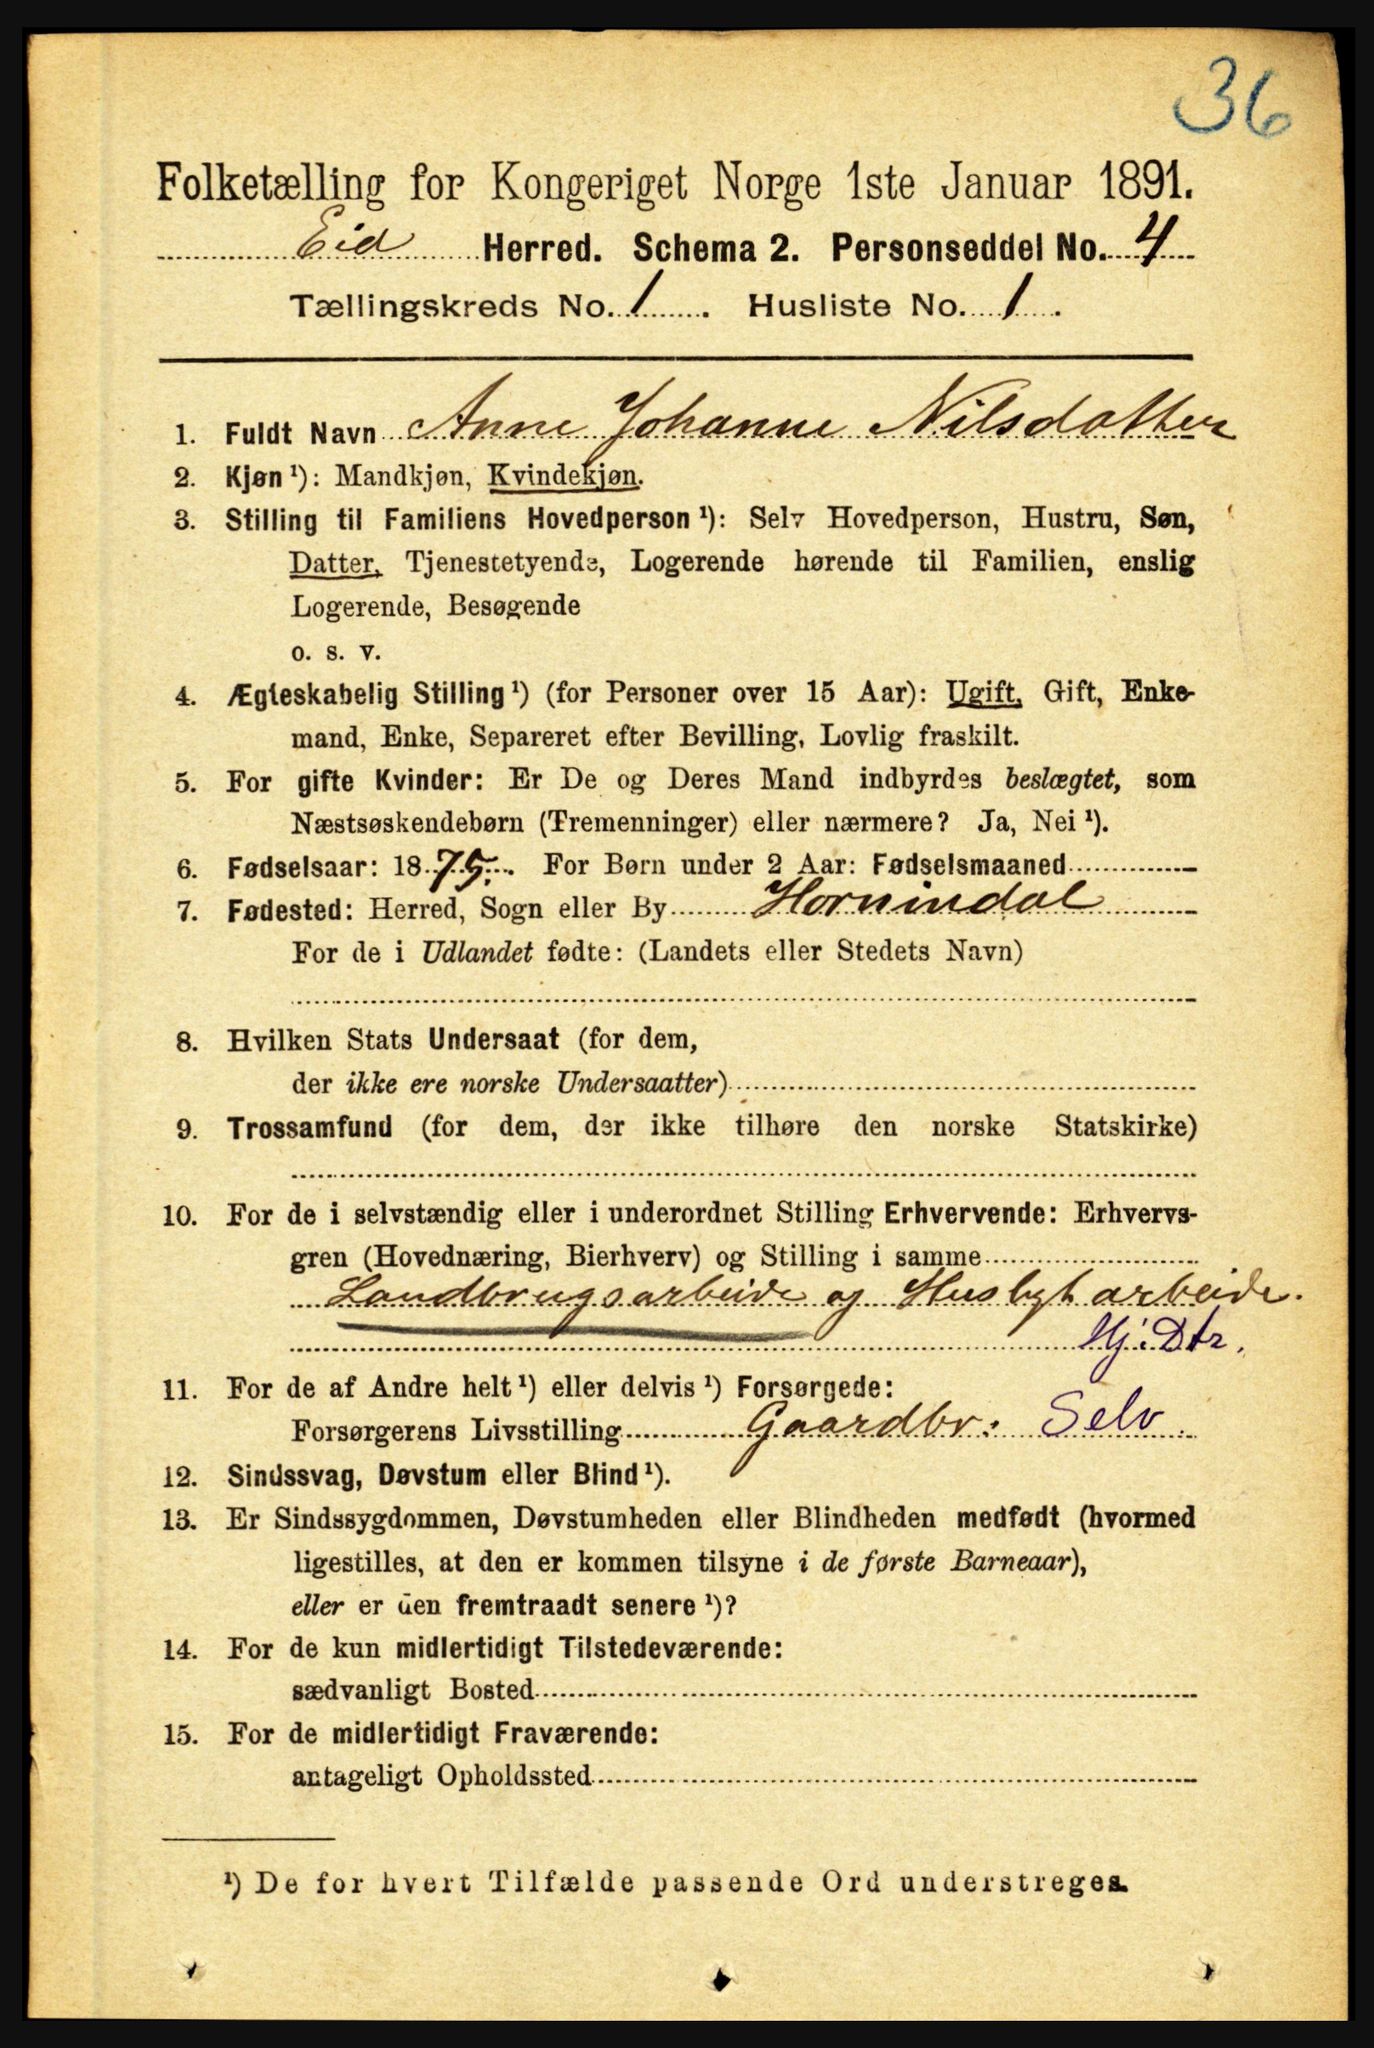 36
Folketælling for Kongeriget Norge 1ste Januar 1891.
Eid Herred. Schema 2. Personseddel No. 4
Tællingskreds No. 1. Husliste No. 1.
1. Fuldt Navn Anne Johanne Nilsdatter
2. Kjøn ¹): Mandkjøn, Kvindekjøn.
3. Stilling til Familiens Hovedperson ¹): Selv Hovedperson, Hustru, Søn,
Datter, Tjenestetyende, Logerende hørende til Familien, enslig
Logerende, Besøgende
o. s. v.
4. Ægteskabelig Stilling ¹) (for Personer over 15 Aar): Ugift, Gift, Enke-
mand, Enke, Separeret efter Bevilling, Lovlig fraskilt.
5. For gifte Kvinder: Er De og Deres Mand indbyrdes beslægtet, som
Næstsøskendebørn (Tremenninger) eller nærmere? Ja, Nei ¹).
6. Fødselsaar: 1875. For Børn under 2 Aar: Fødselsmaaned
7. Fødested: Herred, Sogn eller By Hornindal
For de i Udlandet fødte: (Landets eller Stedets Navn)
8. Hvilken Stats Undersaat (for dem,
der ikke ere norske Undersaatter)
9. Trossamfund (for dem, der ikke tilhøre den norske Statskirke)
10. For de i selvstændig eller i underordnet Stilling Erhvervende: Erhvervs-
gren (Hovednæring, Bierhverv) og Stilling i samme
Landbrugsarbeide og Husligt arbeide.
Hj: Dtr.
11. For de af Andre helt ¹) eller delvis ¹) Forsørgede:
Forsørgerens Livsstilling Gaardbr: Selv.
12. Sindssvag, Døvstum eller Blind ¹).
13. Er Sindssygdommen, Døvstumheden eller Blindheden medfødt (hvormed
ligestilles, at den er kommen tilsyne i de første Barneaar),
eller er den fremtraadt senere ¹)?
14. For de kun midlertidigt Tilstedeværende:
sædvanligt Bosted
15. For de midlertidigt Fraværende:
antageligt Opholdssted
¹) De for hvert Tilfælde passende Ord understreges.